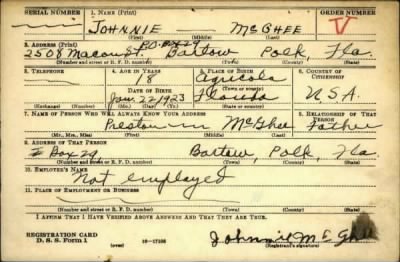 SERIAL NUMBER 1. NAME (Print) ORDER NUMBER
JOHNNIE — McGHEE V
(First) (Middle) (Last)
2. ADDRESS (Print) P.O. BOX 29
2508 Macon St Bartow Polk Fla.
(Number and street or R. F. D. number) (Town) (County) (State)
3. TELEPHONE 4. AGE IN YEARS 5. PLACE OF BIRTH 6. COUNTRY OF CITIZENSHIP
18 Agricola
DATE OF BIRTH (Town or county)
Jan. 22 1923 Florida U.S.A.
(Exchange) (Number) (Mo.) (Day) (Yr.) (State or country)
7. NAME OF PERSON WHO WILL ALWAYS KNOW YOUR ADDRESS 8. RELATIONSHIP OF THAT PERSON
Preston McGhee Father
(Mr., Mrs., Miss) (First) (Middle) (Last)
9. ADDRESS OF THAT PERSON
Box 29 Bartow, Polk, Fla
(Number and street or R. F. D. number) (Town) (County) (State)
10. EMPLOYER'S NAME
Not employed
11. PLACE OF EMPLOYMENT OR BUSINESS
(Number and street or R. F. D. number) (Town) (County) (State)
I AFFIRM THAT I HAVE VERIFIED ABOVE ANSWERS AND THAT THEY ARE TRUE.
REGISTRATION CARD
D. S. S. Form 1 16—17105 Johnnie McGhee
(over) (Registrant's signature)